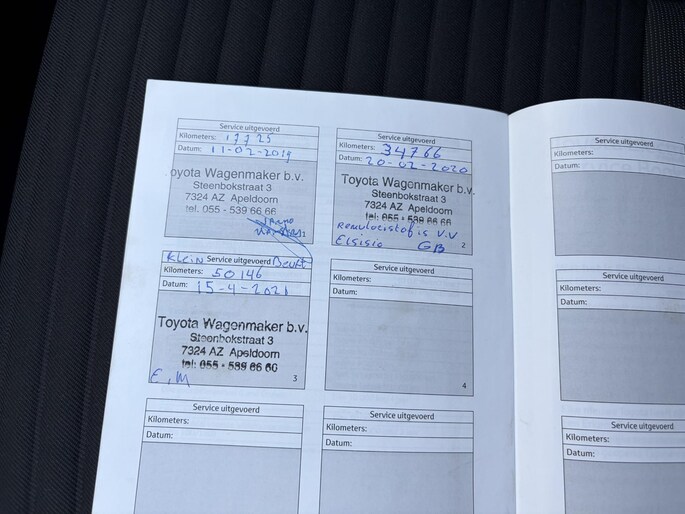 Service uitgevoerd
Kilometers:
Datum: 11-02-2019
oyota Wagenmaker b.v.
Steenbokstraat 3
7324 AZ Apeldoorn
tel. 055 - 539 66 66
Service uitgevoerd
Kilometers: 34766
Datum: 20-02-2020
Toyota Wagenmaker b.v.
Steenbokstraat 3
7324 AZ Apeldoorn
tel: 055 - 539 66 66
V.V
GB
2
Klein Service uitgevoerd Beurt
Kilometers: 50146
Datum: 15-4-2021
Toyota Wagenmaker b.v.
Steenbokstraat 3
7324 AZ Apeldoorn
tel: 055 - 539 66 66
E,M
3
Service uitgevoerd
Kilometers:
Datum:
4
Service uitgevoerd
Kilometers:
Datum:
Service uitgevoerd
Kilometers:
Datum:
Service uitgevoerd
Kilometers:
Datum:
Service uitgevoerd
Kilometers:
Datum:
Service uitgevoerd
Kilometers:
Datum: